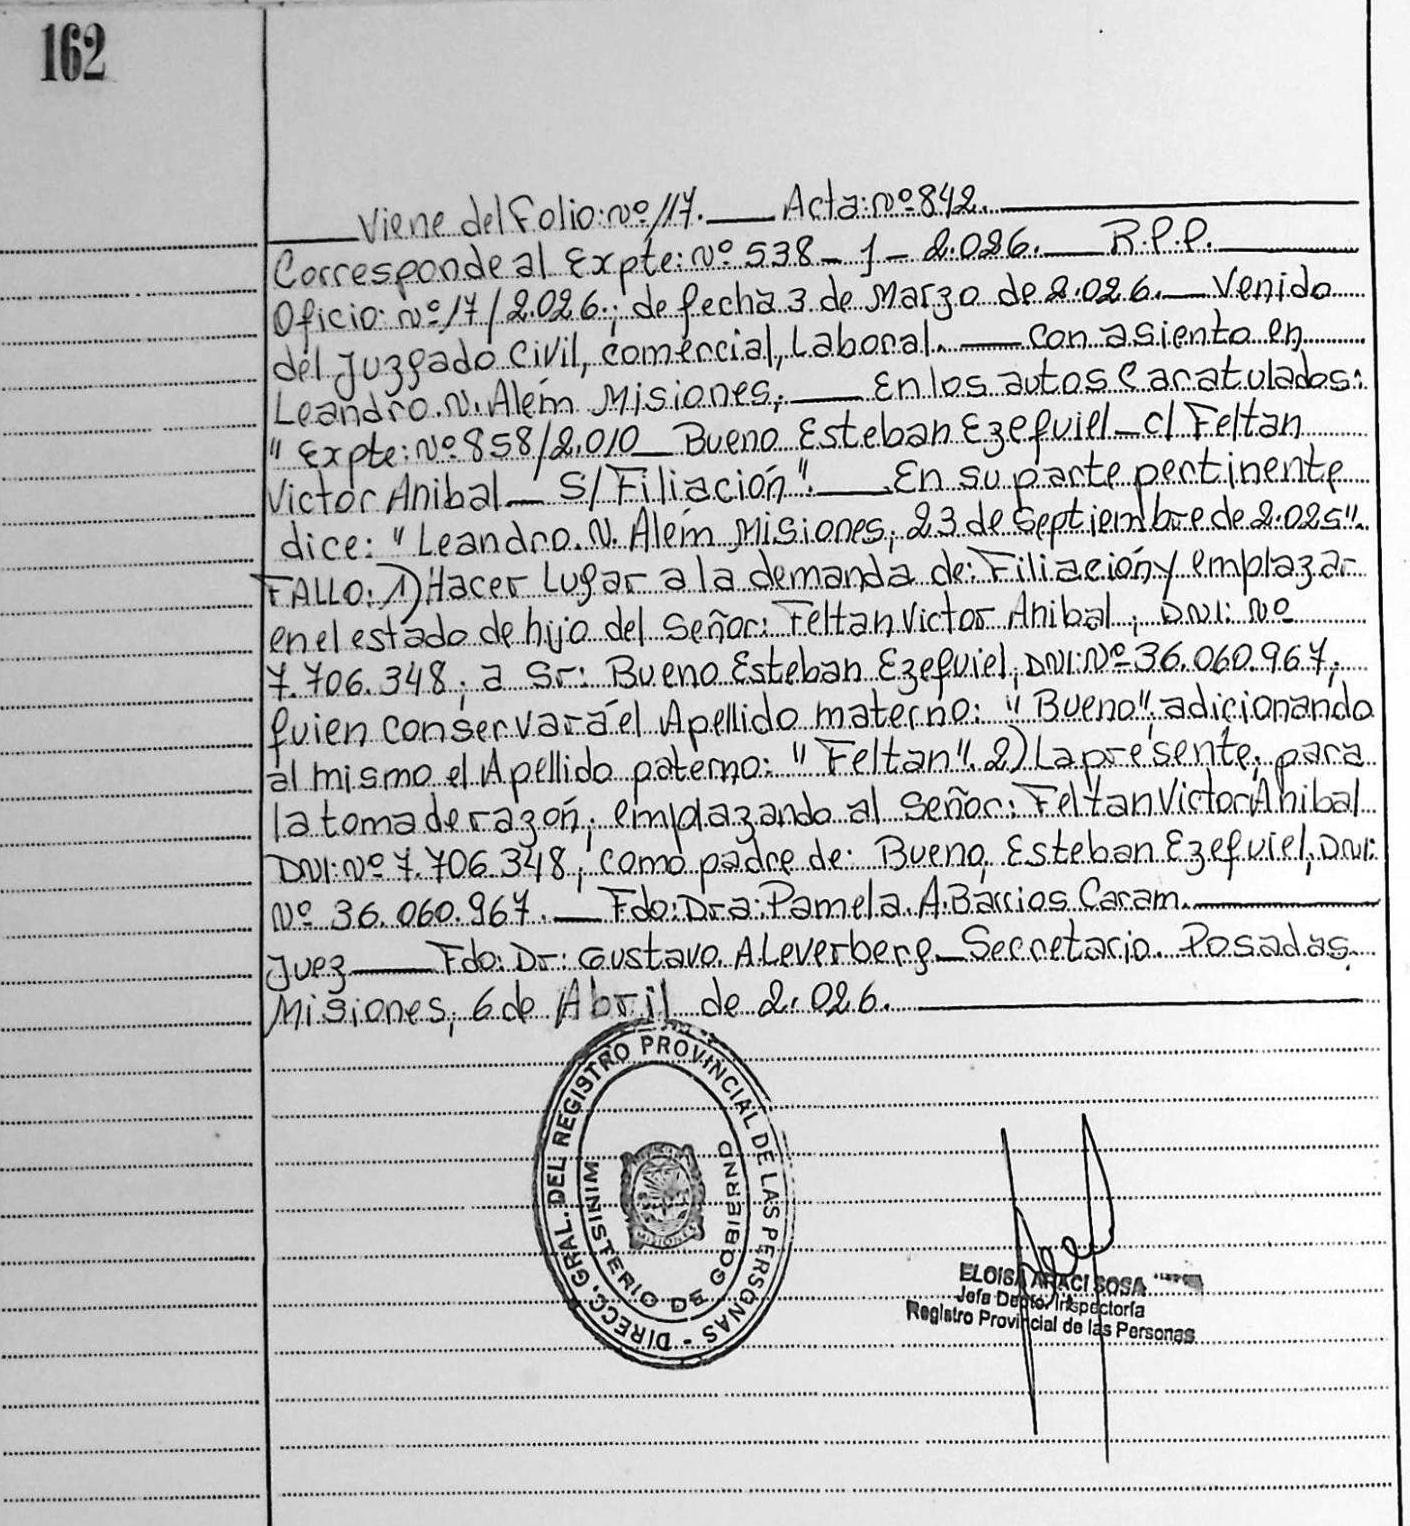 162
Viene del Folio: Nº 117. Acta: Nº 842.
Corresponde al Expte: Nº 538 - 1 - 2.026. R.P.P.
Oficio: Nº 17/2.026.; de fecha 3 de Marzo de 2.026. Venido
del Juzgado Civil, Comercial, Laboral. con asiento en
Leandro. N. Alem Misiones; En los autos Caratulados:
" Expte: Nº 858/2.010 Bueno Esteban Ezequiel - c/ Feltan
Victor Anibal - S/ Filiación". En su parte pertinente
dice: "Leandro. N. Alem Misiones, 23 de Septiembre de 2.025".
FALLO: 1) Hacer Lugar a la demanda de: Filiación y emplazar
en el estado de hijo del Señor: Feltan Victor Anibal; DNI: Nº
7.706.348; a Sr: Bueno Esteban Ezequiel; DNI: Nº 36.060.967;
quien conservará el Apellido materno: "Bueno"; adicionando
al mismo el Apellido paterno: "Feltan". 2) La presente; para
la toma de razón; emplazando al Señor: Feltan Victor Anibal
DNI: Nº 7.706.348; como padre de: Bueno, Esteban Ezequiel, DNI:
Nº 36.060.967. Fdo: Dra: Pamela. A. Barrios Caram.
Juez Fdo: Dr: Gustavo. A Leverberg - Secretario. Posadas.
Misiones; 6 de Abril de 2.026.
DIRECC. GRAL. DEL REGISTRO PROVINCIAL DE LAS PERSONAS -
MINISTERIO DE GOBIERNO
MISIONES
ELOISA ARACI SOSA
Jefa Depto. Inspectoría
Registro Provincial de las Personas